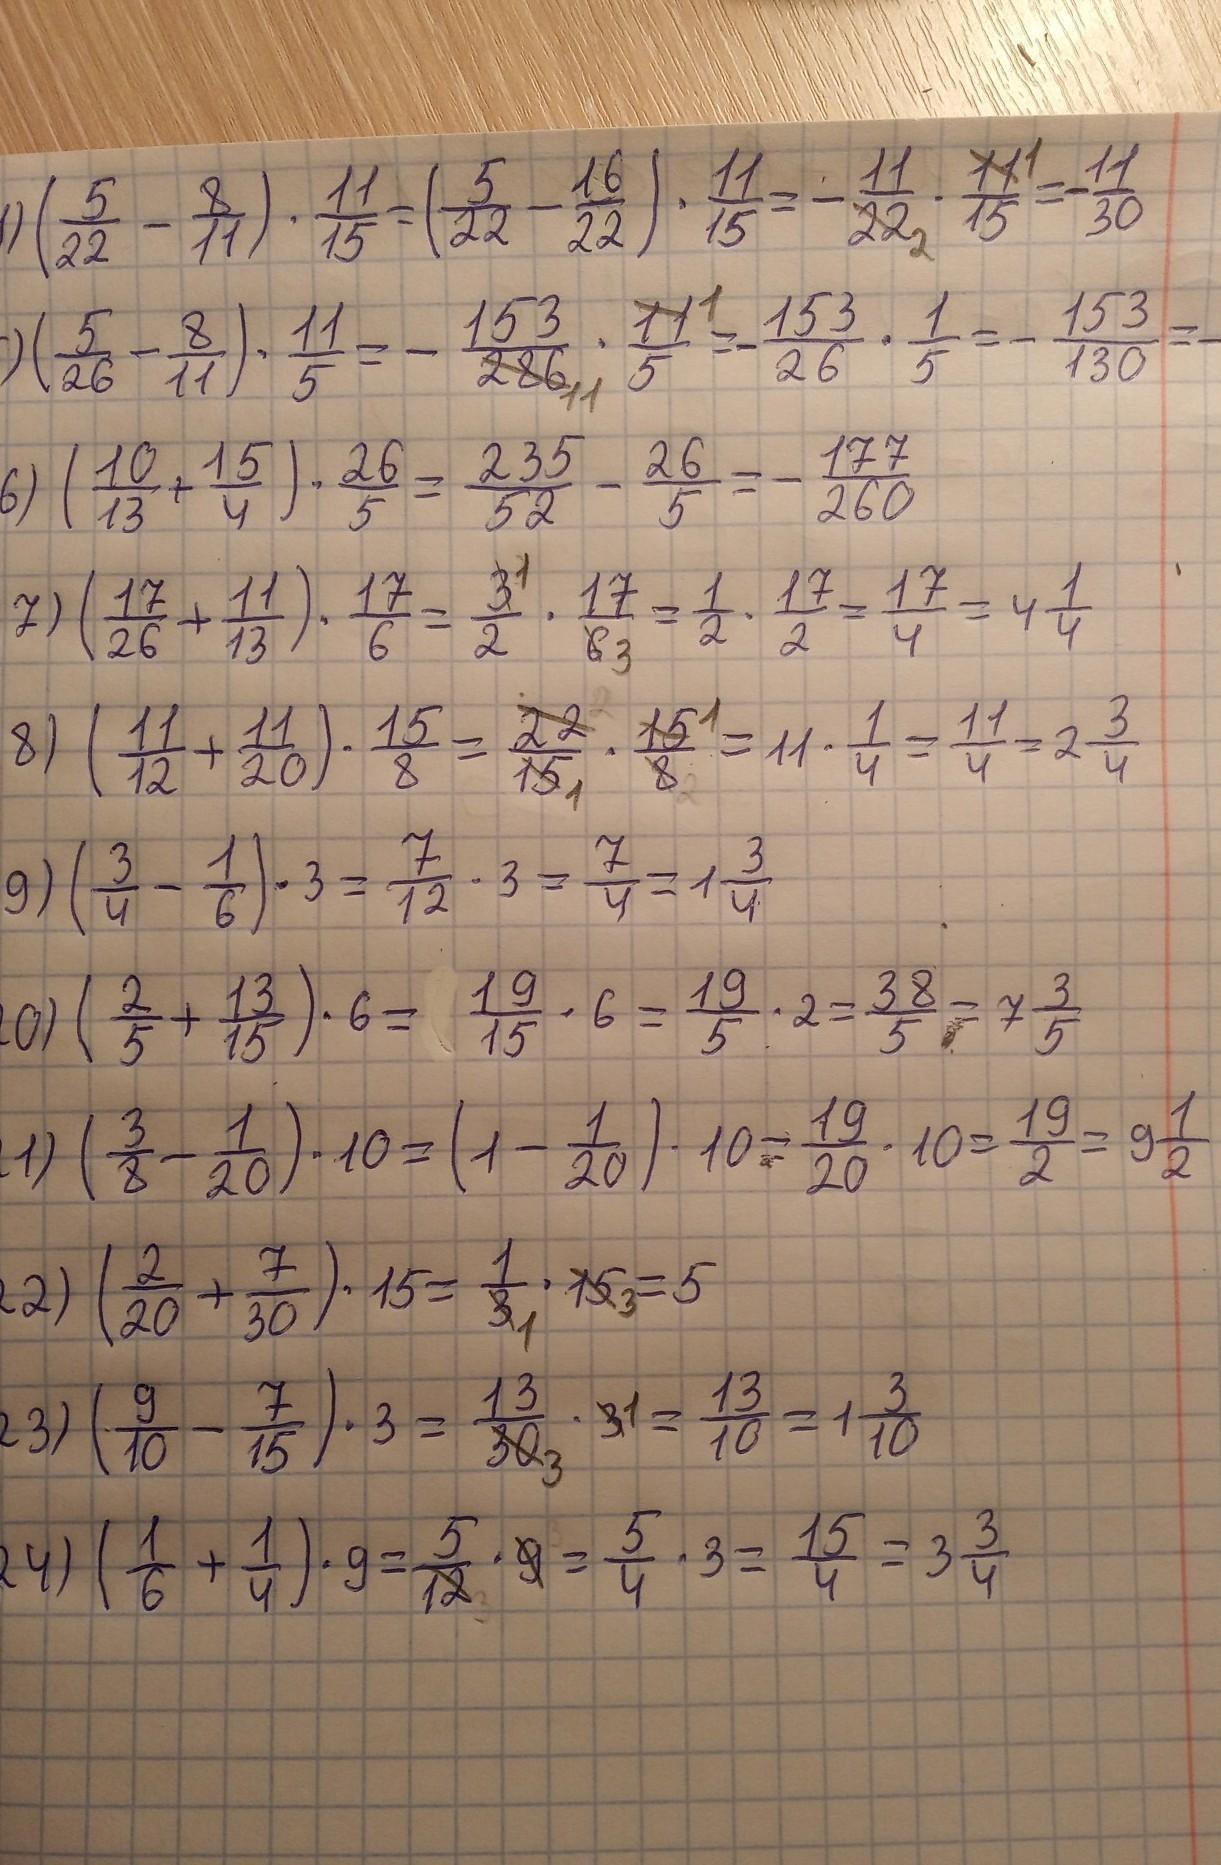 1) (5/22 - 8/11) · 11/15 = (5/22 - 16/22) · 11/15 = - 11/22 2 · 11 1/15 = - 11/30
) (5/26 - 8/11) · 11/5 = - 153/286 11 · 11 1/5 = - 153/26 · 1/5 = - 153/130 = -
6) (10/13 + 15/4) · 26/5 = 235/52 - 26/5 = - 177/260
7) (17/26 + 11/13) · 17/6 = 3 1/2 · 17/6 3 = 1/2 · 17/2 = 17/4 = 4 1/4
8) (11/12 + 11/20) · 15/8 = 22/15 1 · 15 1/8 2 = 11 · 1/4 = 11/4 = 2 3/4
9) (3/4 - 1/6) · 3 = 7/12 · 3 = 7/4 = 1 3/4
20) (2/5 + 13/15) · 6 = 19/15 · 6 = 19/5 · 2 = 38/5 = 7 3/5
21) (3/8 - 1/20) · 10 = (1 - 1/20) · 10 = 19/20 · 10 = 19/2 = 9 1/2
22) (2/20 + 7/30) · 15 = 1/3 1 · 15 3 = 5
23) (9/10 - 7/15) · 3 = 13/30 3 · 3 1 = 13/10 = 1 3/10
24) (1/6 + 1/4) · 9 = 5/12 3 · 9 = 5/4 · 3 = 15/4 = 3 3/4